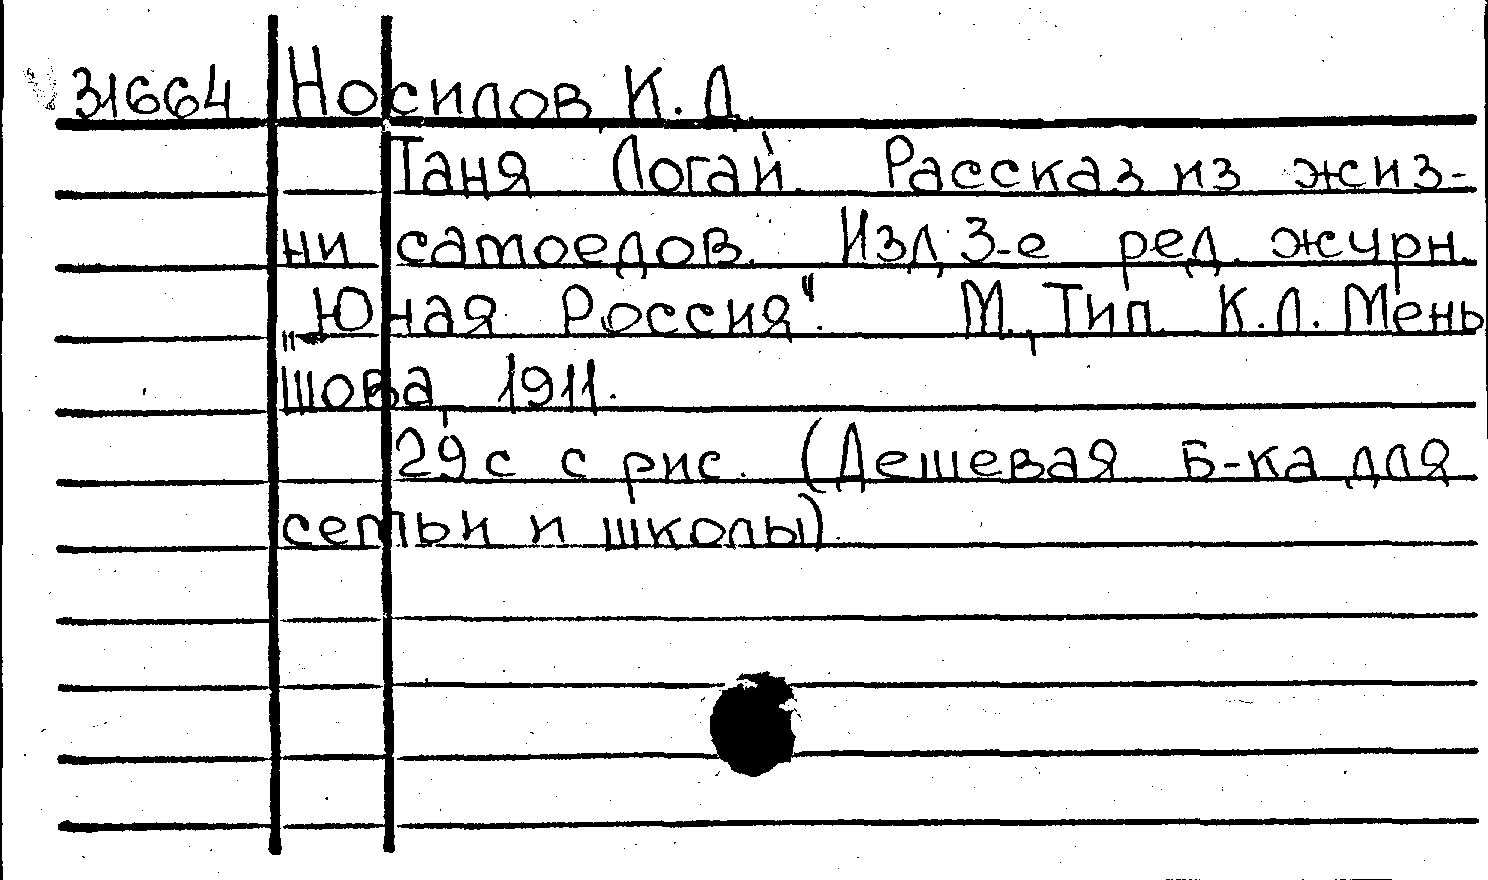 31664 Носилов К. Д.
Таня Логай. Рассказ из жиз-
ни самоедов. Изд. 3-е ред. журн.
"Юная Россия". М., Тип. К.Л. Мень
шова, 1911.
29 с с рис. (Дешевая Б-ка для
семьи и школы).